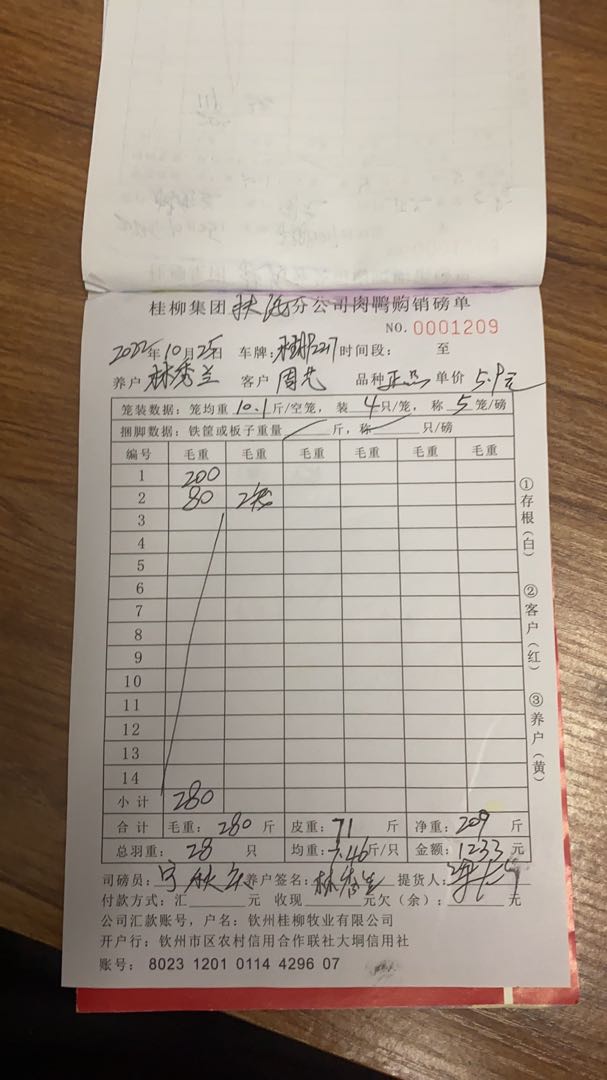 桂柳集团 分公司肉鸭购销磅单
NO. 0001209
2022年10月25日 车牌: 时间段: 至
养户 林秀兰 客户 周艺 品种 正品 单价 5.9元
笼装数据: 笼均重 10.1 斤/空笼, 装 4 只/笼, 称 5 笼/磅
捆脚数据: 铁筐或板子重量 斤, 称 只/磅
编号 毛重 毛重 毛重 毛重 毛重 毛重
1 200
2 80 2笼
3
4
5
6
7
8
9
10
11
12
13
14
小计 280
合计 毛重: 280 斤 皮重: 71 斤 净重: 209 斤
总羽重: 28 只 均重: 7.46 斤/只 金额: 1233 元
司磅员: 养户签名: 林秀兰 提货人:
付款方式: 汇 元 收现 元欠(余): 元
公司汇款账号, 户名: 钦州桂柳牧业有限公司
开户行: 钦州市区农村信用合作联社大垌信用社
账号: 8023 1201 0114 4296 07
①存根(白)
②客户(红)
③养户(黄)